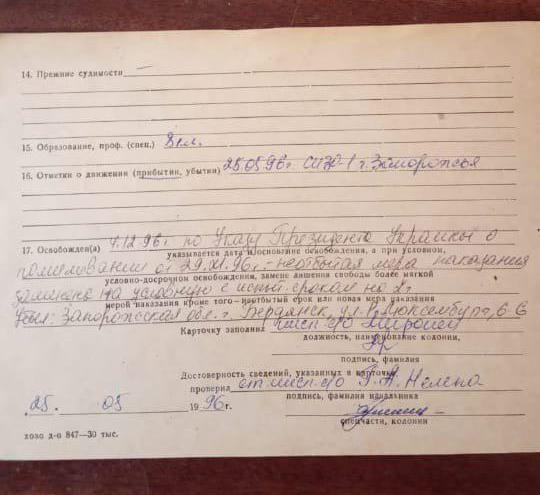 14. Прежние судимости —
15. Образование, проф. (спец.) 8 кл.
16. Отметки о движении (прибытии, убытии) 25.05.96г СИЗО-1 г. Запорожья
17. Освобожден(а) 4.12.96г по Указу Президента Украины о
указывается дата и основание освобождения, а при условном,
помиловании от 29.XI.96г. - неотбытая мера наказания
условно-досрочном освобождении, замене лишения свободы более мягкой
заменена на условную с испыт. сроком на
мерой наказания кроме того—неотбытый срок или новая мера наказания
Убыл: Запорожская обл. г. Бердянск, ул. Р. Люксембург, 6-6
Карточку заполнил инсп. с/о
должность, наименование колонии,
подпись, фамилия
Достоверность сведений, указанных в карточке
проверил ст. инсп. с/о
подпись, фамилия начальника
25. 05 1996 г.
спецчасти, колонии
хозо д-о 847—30 тыс.